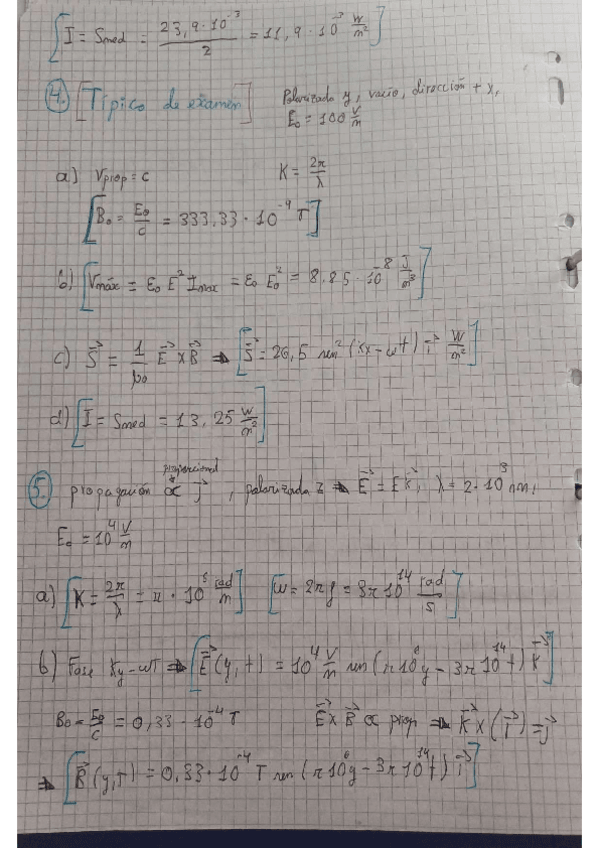 [I = Smed = 23,9·10⁻³/2 = 11,9·10⁻³ W/m²]
4. [Típico de examen] Polarizada y, vacío, dirección +x,
E₀ = 100 V/m
a) Vprop = c K = 2π/λ
[B₀ = E₀/c = 333,33·10⁻⁹ T]
b) [Vmáx = ε₀ E² Imax = ε₀ E₀² = 8,85·10⁻⁸ J/m³]
c) S⃗ = 1/μ₀ E⃗ x B⃗ ⇒ [S⃗ = 26,5 sen²(Kx - ωt) i⃗ W/m²]
d) [I = Smed = 13,25 W/m²]
proporcional
5. propagación ∝ j⃗, polarizada z ⇒ E⃗ = E k⃗, λ = 2·10³ nm,
E₀ = 10⁴ V/m
a) [K = 2π/λ = π·10⁶ rad/m] [ω = 2πf = 3π10¹⁴ rad/s]
b) Fase Ky - ωt ⇒ [E⃗(y,t) = 10⁴ V/m sen(π10⁶y - 3π10¹⁴t) k⃗]
B₀ = E₀/c = 0,33·10⁻⁴ T E⃗ x B⃗ ∝ prop ⇒ k⃗ x (i⃗) = j⃗
⇒ [B⃗(y,t) = 0,33·10⁻⁴ T sen(π10⁶y - 3π10¹⁴t) i⃗]